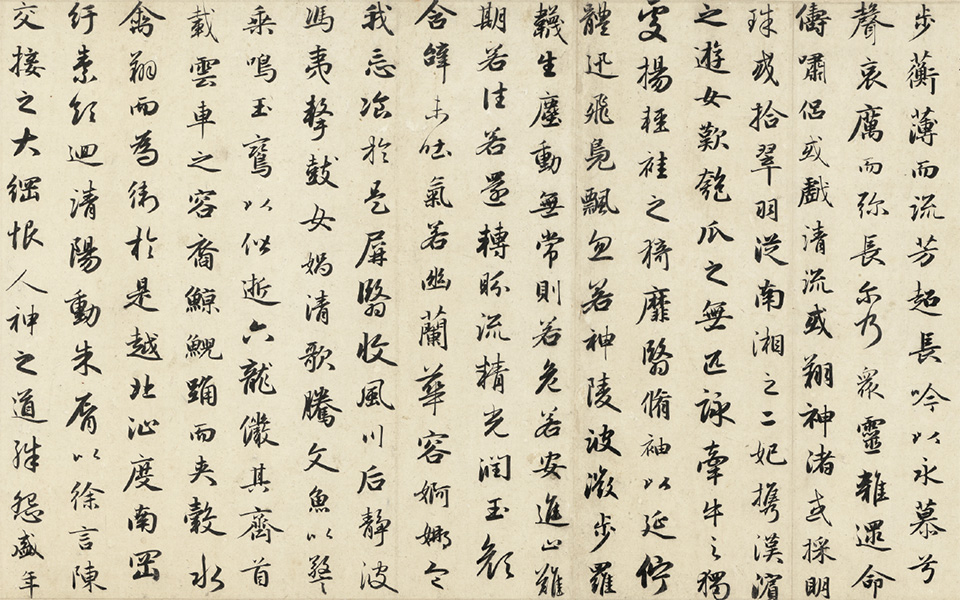 步蘅薄而流芳超長吟以永慕兮
聲哀厲而弥長尒乃衆靈雜遝命
儔嘯侶或戲清流或翔神渚或採明
珠或拾翠羽從南湘之二妃攜漢濱
之遊女歎匏瓜之無匹詠牽牛之獨
處揚輕袿之猗靡翳脩袖以延佇
體迅飛鳧飄忽若神陵波微步羅
韈生塵動無常則若危若安進止難
期若往若還轉眄流精光潤玉顏
含辭未吐氣若幽蘭華容婀娜令
我忘湌於是屏翳收風川后靜波
馮夷擊鼓女媧清歌騰文魚以警
乘鳴玉鸞以偕逝六龍儼其齊首
載雲車之容裔鯨鯢踊而夾轂水
禽翔而為衛於是越北沚度南岡
紆素領迴清陽動朱脣以徐言陳
交接之大綱恨人神之道殊怨盛年